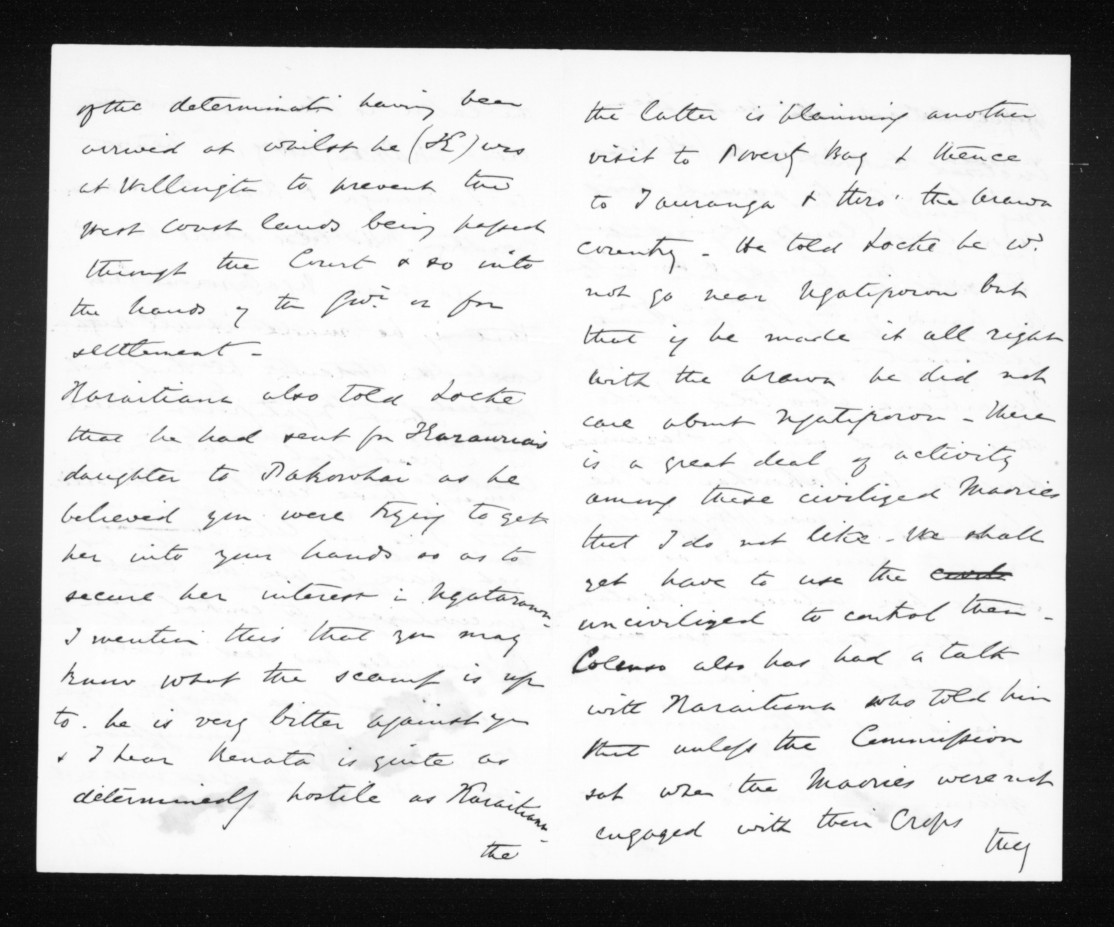 of the determinati having been
arrived at whilst he (K) was
at Wellington to prevent the
West Coast lands being passed
through the Court & so into
the hands of the Govt. or for
settlement -
Karaitiana also told Locke
that he had sent for Karaurias
daughter to Pakowhai as he
believed you were trying to get
her into your hands so as to
secure her interest in
I mention this that you may
know what the scamp is up
to. he is very bitter against you
& I hear Henata is quite as
determinedly hostile as Karaitiana -
the
the latter is planning another
visit to Poverty Bay & thence
to Tauranga & thro' the Arawa
country - He told Locke he wd.
not go near Ngatiporou but
that if he made it all right
with the Arawa he did not
care about Ngatiporou - there
is a great deal of activity
among these civilized Maories
that I do not like - We shall
yet have to use the
uncivilized to control them -
Colenso also has had a talk
with Karaitiana who told him
that unless the Commission
sat when the Maories were not
engaged with their Crops
they